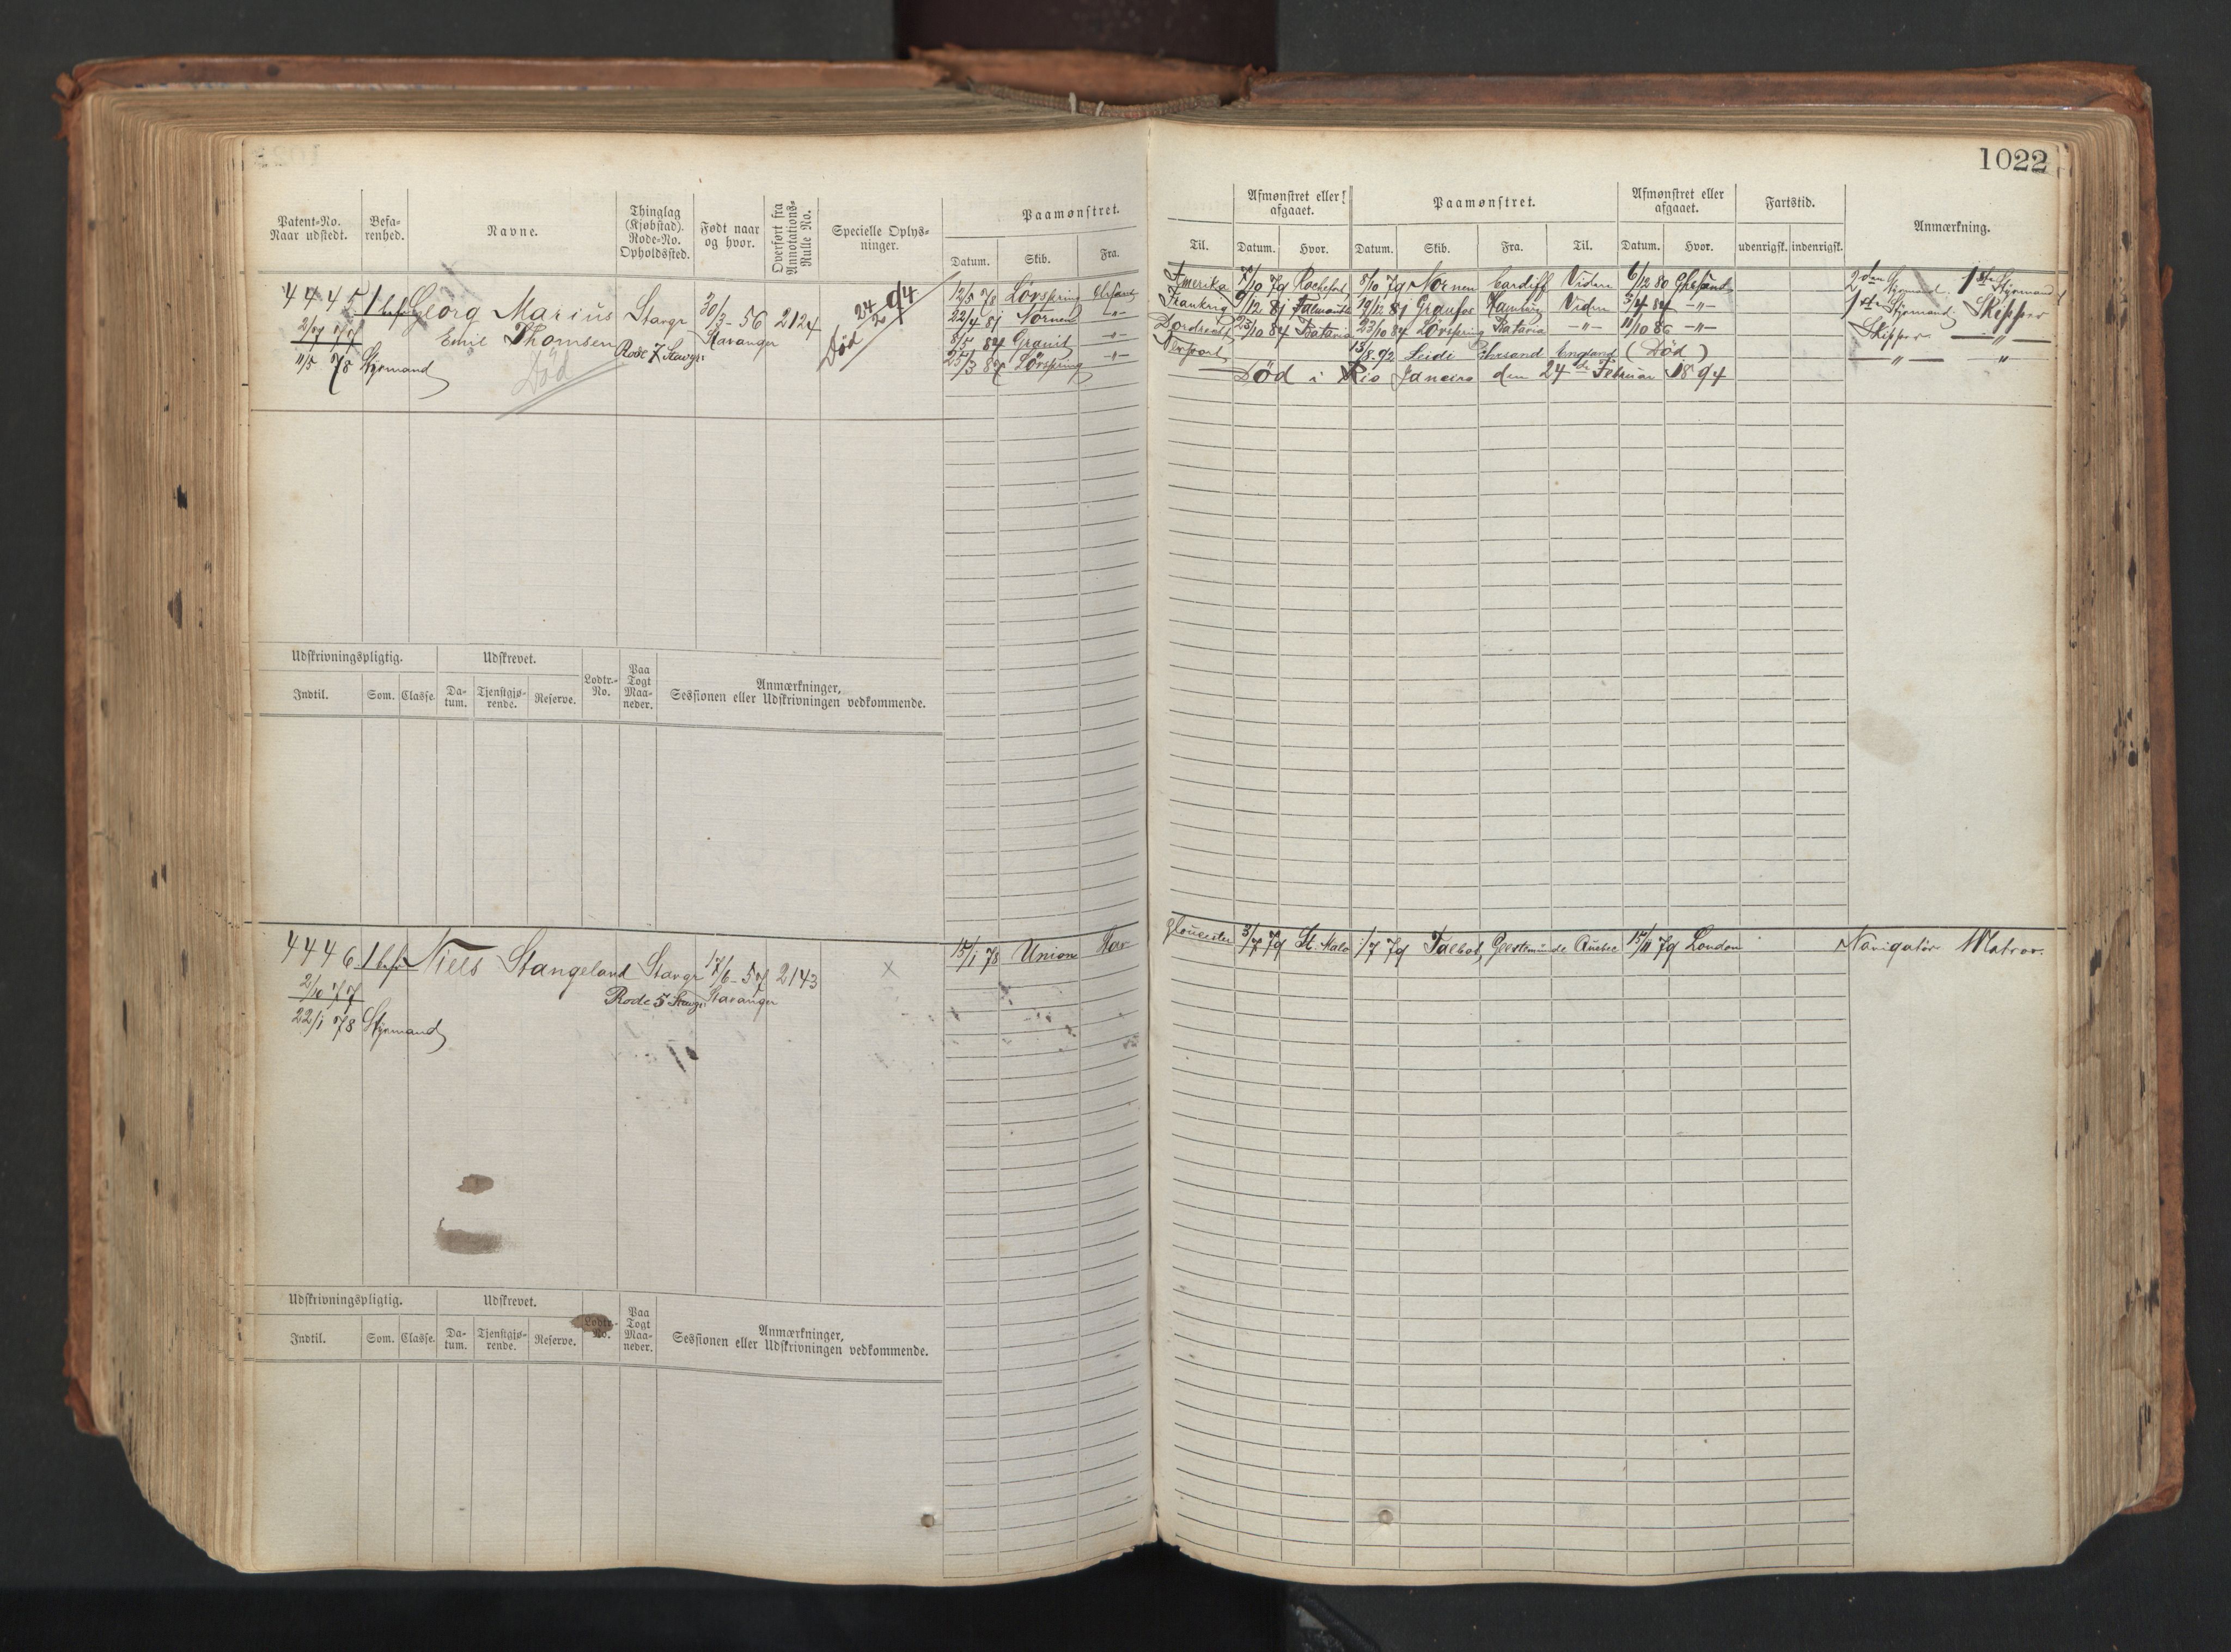 1022
Patent-No. Naar udstedt. Befa-renhed. Navne. Thinglag (Kjøbstad). Rode-No. Opholdssted. Født naar og hvor. Overført fra Annotations-Rulle No. Specielle Oplys-ninger. Paamønstret. Datum. Skib. Fra.
Til. Afmønstret eller afgaaet. Datum. Hvor. Paamønstret. Datum. Skib. Fra. Til. Afmønstret eller afgaaet. Datum. Hvor. Fartstid. udenrigsk. indenrigsk. Anmærkning.
4445 1 bef Georg Marius Stavgr 30/3-56 2124 Død 24/2 94
2/7 77 Emil Thomsen Rode 7 Stavgr Stavanger
11/5 78 Styrmand Død
12/5 78 Lövspring Amerika 7/10 79 Rochefort 8/10 79 Nornen Cardiff Viden 6/12 80 2den Styrmand 1ste Styrmand
22/4 81 Nornen -"- Frankrig 9/12 81 Falmouth 19/12 81 Hamburg Viden 3/4 84 -"- 1ste Styrmand Skipper
8/5 84 Granit -"- Dordrecht 23/10 84 Batavia 23/10 84 Lövspring Batavia -"- 11/10 86 -"- Skipper -"-
25/3 87 Lövspring -"- Newport 13/8-92 Leidi England (Död) -"- -"-
Död i Rio Janeiro den 24de Februar 1894
Udskrivningspligtig. Udskrevet. Lodtr.-No. Paa Togt Maa-neder. Anmærkninger, Sessionen eller Udskrivningen vedkommende.
Indtil. Som. Classe. Da-tum. Tjenstgjø-rende. Reserve.
4446 1 bef Niels Stangeland Stavgr 17/6-57 2143 X 15/1 78 Union Stav Gloucester 3/7 79 St. Malo 1/7 79 Talbot, Geestemünde Quebec 15/11 79 London Navigatör Matros.
2/10 77 Rode 5 Stavgr Stavanger
22/1 78 Styrmand
Udskrivningspligtig. Udskrevet. Lodtr.-No. Paa Togt Maa-neder. Anmærkninger, Sessionen eller Udskrivningen vedkommende.
Indtil. Som. Classe. Da-tum. Tjenstgjø-rende. Reserve.